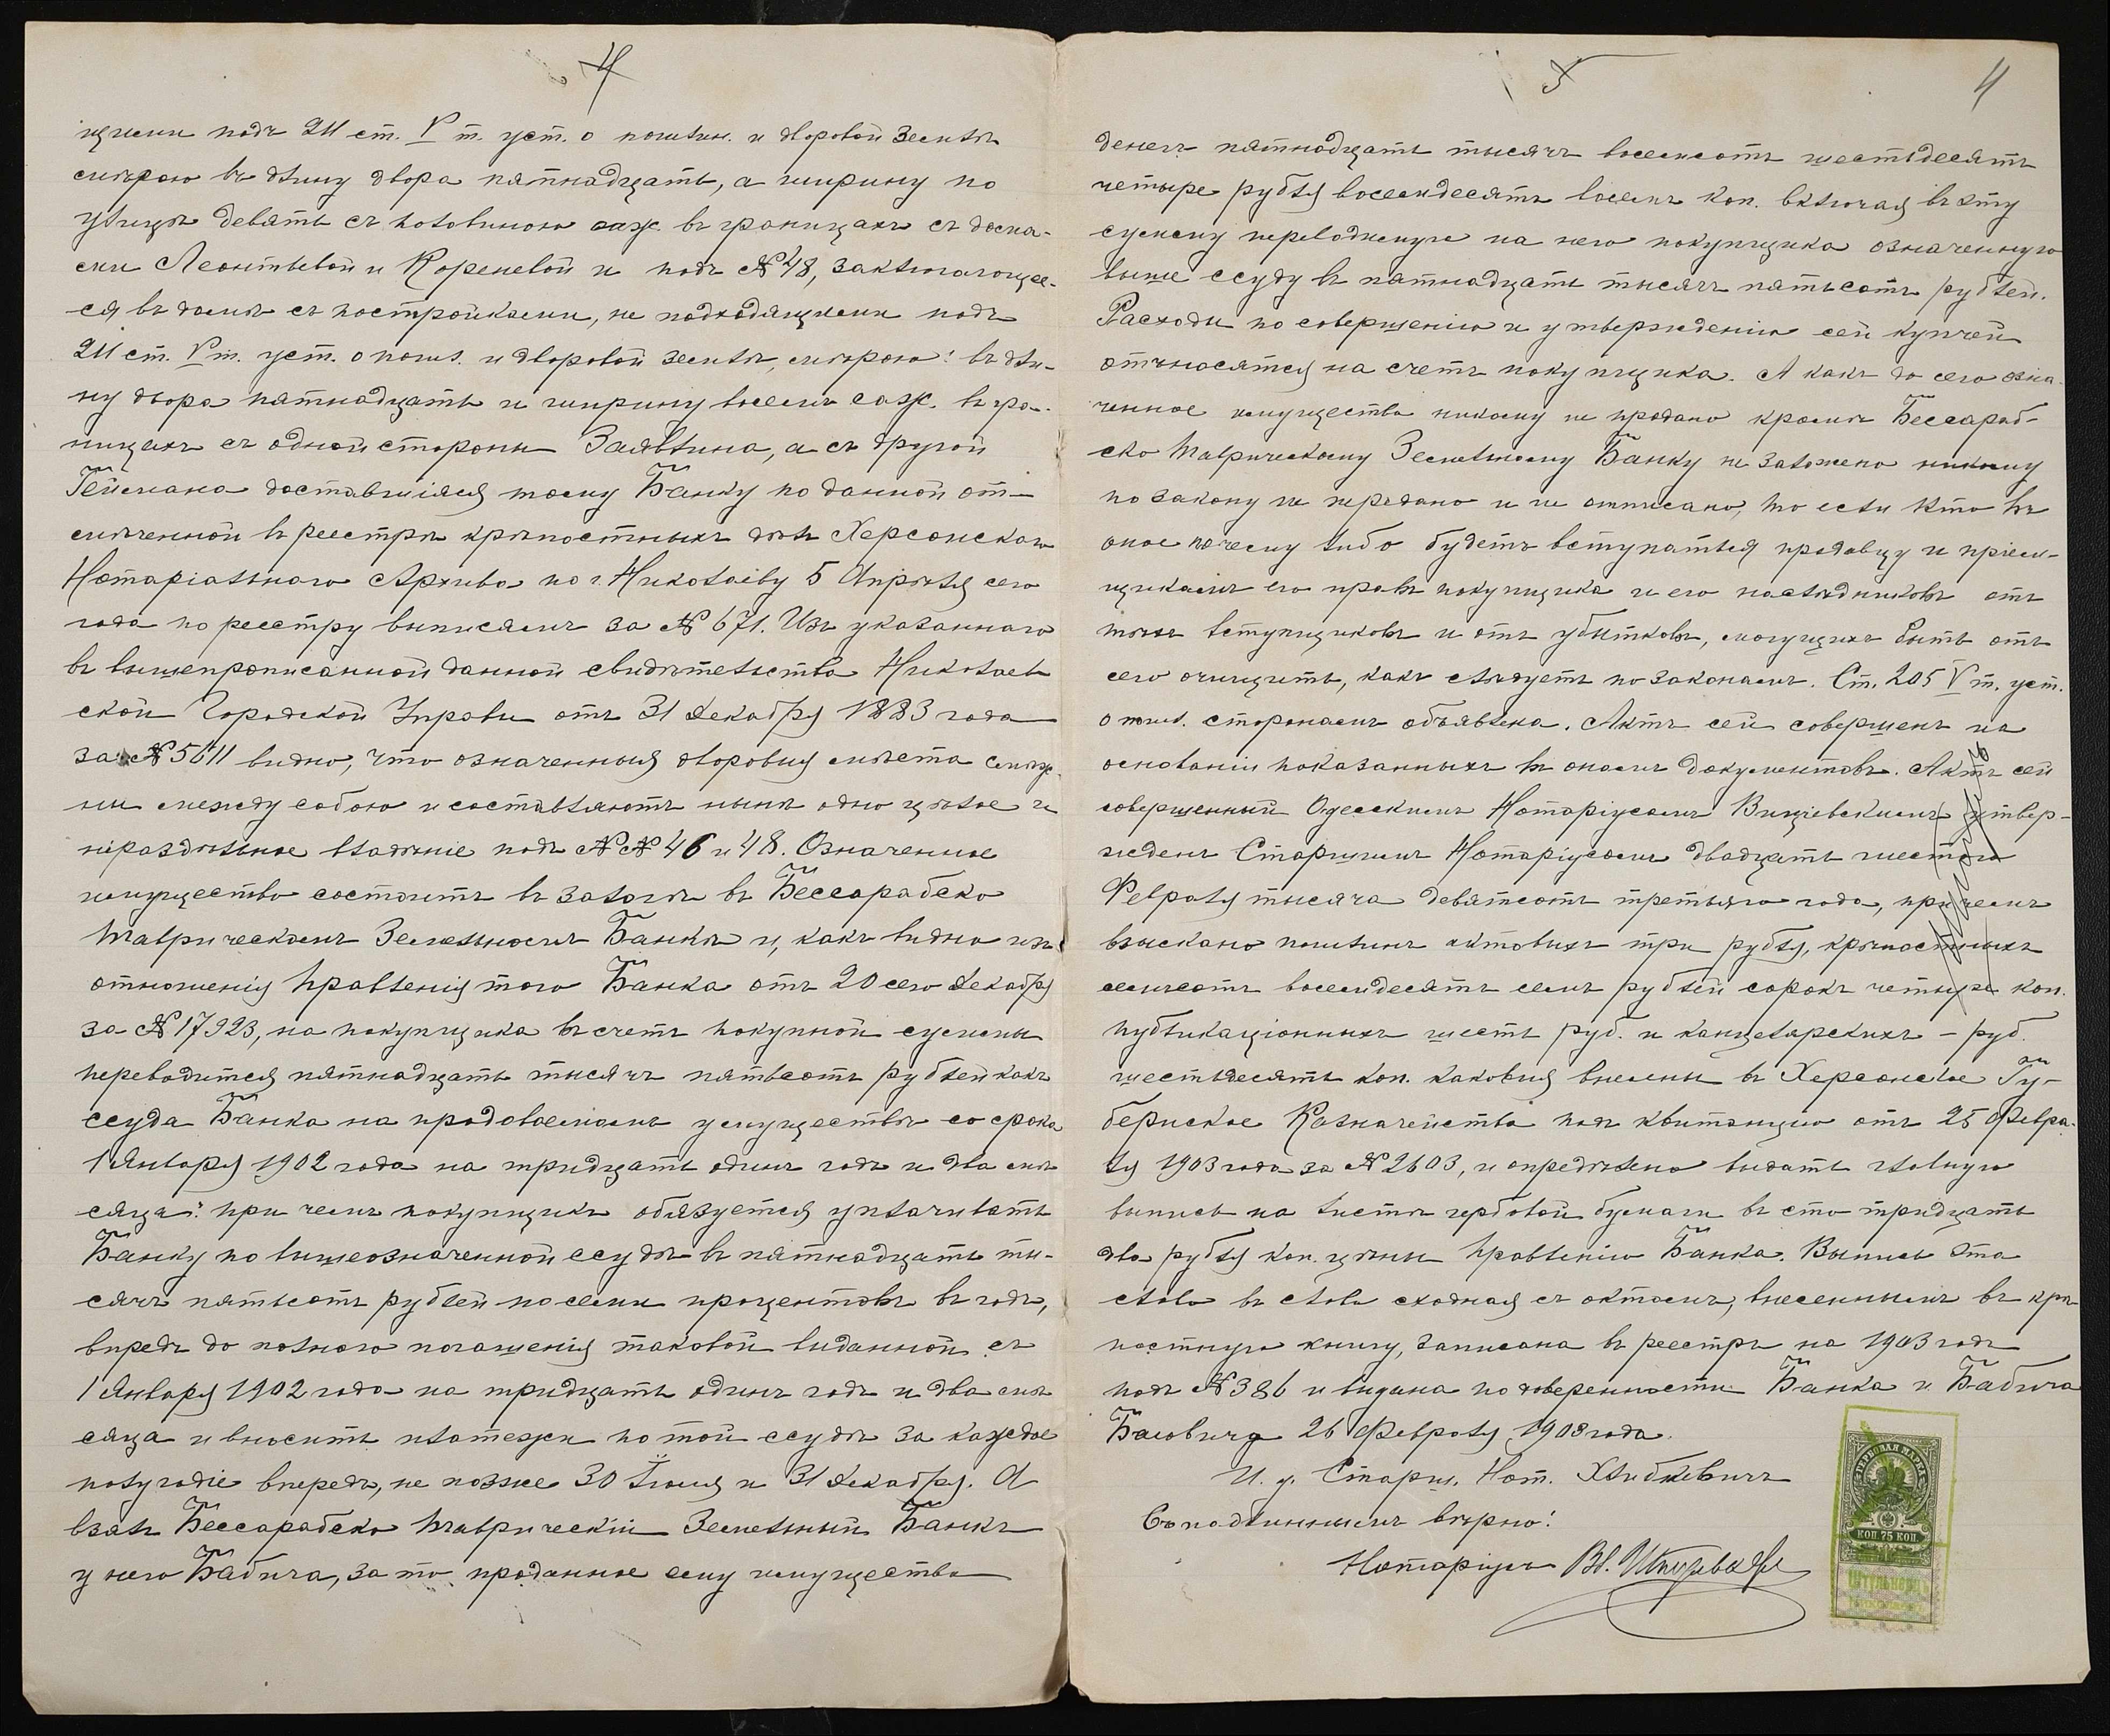 4
щими подъ 211 ст. V т. уст. о пошлин. и дворовой земли
мѣрою въ длину двора пятнадцать, а ширину по
улицѣ девять съ половиною саж. въ границахъ съ дома-
ми Леонтьевой и Кореневой и подъ № 48, заключающее-
ся въ домѣ съ постройками, не подходящими подъ
211 ст. V т. уст. о пошл. и дворовой земли, мѣрою: въ дли-
ну двора пятнадцать и ширину восемь саж. въ гра-
ницахъ съ одной стороны Заявлина, а съ другой
Геймана доставшіяся тому Банку по данной от-
мѣченной въ реестрѣ крѣпостныхъ дѣлъ Херсонскаго
Нотаріальнаго Архива по г. Николаеву 5 Апрѣля сего
года по реестру выписямъ за № 671. Изъ указаннаго
въ вышепрописанной данной свидѣтельства Николаев
ской Городской Управы отъ 31 Декабря 1883 года
за № 5611 видно, что означенныя дворовыя мѣста смеж-
ны между собою и составляютъ нынѣ одно цѣлое и
нераздѣльное владѣніе подъ №№ 46 и 48. Означенное
имущество состоитъ въ залогѣ въ Бессарабско
Таврическомъ Земельномъ Банкѣ и, какъ видно изъ
отношенія Правленія того Банка отъ 20 сего Декабря
за № 17923, на покупщика въ счетъ покупной суммы
переводится пятнадцать тысячъ пятьсотъ рублей какъ
ссуда Банка на продоваемомъ имуществѣ со срока
1 Января 1902 года на тридцать одинъ годъ и два мѣ
сяца: при чемъ покупщикъ обязуется уплачивать
Банку по вышеозначенной ссудѣ въ пятнадцать ты-
сячъ пятьсотъ рублей по семи процентовъ въ годъ,
впредь до полнаго погашенія таковой выданной съ
1 Января 1902 года на тридцать одинъ годъ и два мѣ
сяца и вносить платежи по той ссудѣ за каждое
полугодіе впередъ, не позже 30 Іюня и 31 Декабря. А
взялъ Бессарабско Таврическій Земельный Банкъ
у него Бабича, за то проданное ему имущество
5
4
денегъ пятнадцать тысячъ восемьсотъ шестьдесятъ
четыре рубля восемьдесятъ восемь коп. включая въ эту
сумму переводимую на него покупщика означенную
выше ссуду въ пятнадцать тысячъ пятьсотъ рублей.
Расходы по совершенію и утвержденію сей купчей
относятся на счетъ покупщика. А какъ до сего озна-
ченное имущество никому не продано кромѣ Бессараб-
ско Таврическому Земельному Банку не заложено никому
по закону не передано и не отписано, то если кто въ
оное почему либо будетъ вступаться продавцу и пріем-
щикамъ его правъ покупщика и его наслѣдниковъ отъ
тѣхъ вступщиковъ и отъ убытковъ, могущихъ быть отъ
сего очищать, какъ слѣдуетъ по законамъ. Ст. 205 V т. уст.
о пошл. сторонамъ объявлена. Актъ сей совершенъ на
основаніи показанныхъ въ ономъ документовъ. Актъ сей
совершенный Одесскимъ Нотаріусомъ утвер-
жденъ Старшимъ Нотаріусомъ двадцать шестого
Февраля тысяча девятьсотъ третьяго года, причемъ
взыскано пошлинъ актовыхъ три рубля, крѣпостныхъ
семьсотъ восемьдесятъ семь рублей сорокъ четыре коп.
публикаціонныхъ шесть руб. и канцелярскихъ – руб.
шестьдесятъ коп. каковыя внесены въ Херсонское Гу-
бернское Казначейство подъ квитанцію отъ 25 Февра-
ля 1903 года за № 2603, и опредѣлено выдать главную
выпись на листѣ гербовой бумаги въ сто тридцать
два рубля коп. цѣны Правленію Банка. Выпись эта
слово въ слово сходная съ актомъ, внесеннымъ въ крѣ-
постную книгу, записана въ реестръ на 1903 годъ
подъ № 386 и выдана по доверенности Банка и Бабича
26 Февраля 1903 года.
И. д. Старш. Нот. Хлибкевичъ
Съ подлиннымъ вѣрно:
Нотаріусъ Вл.
ГЕРБОВАЯ МАРКА
КОП. 75 КОП.